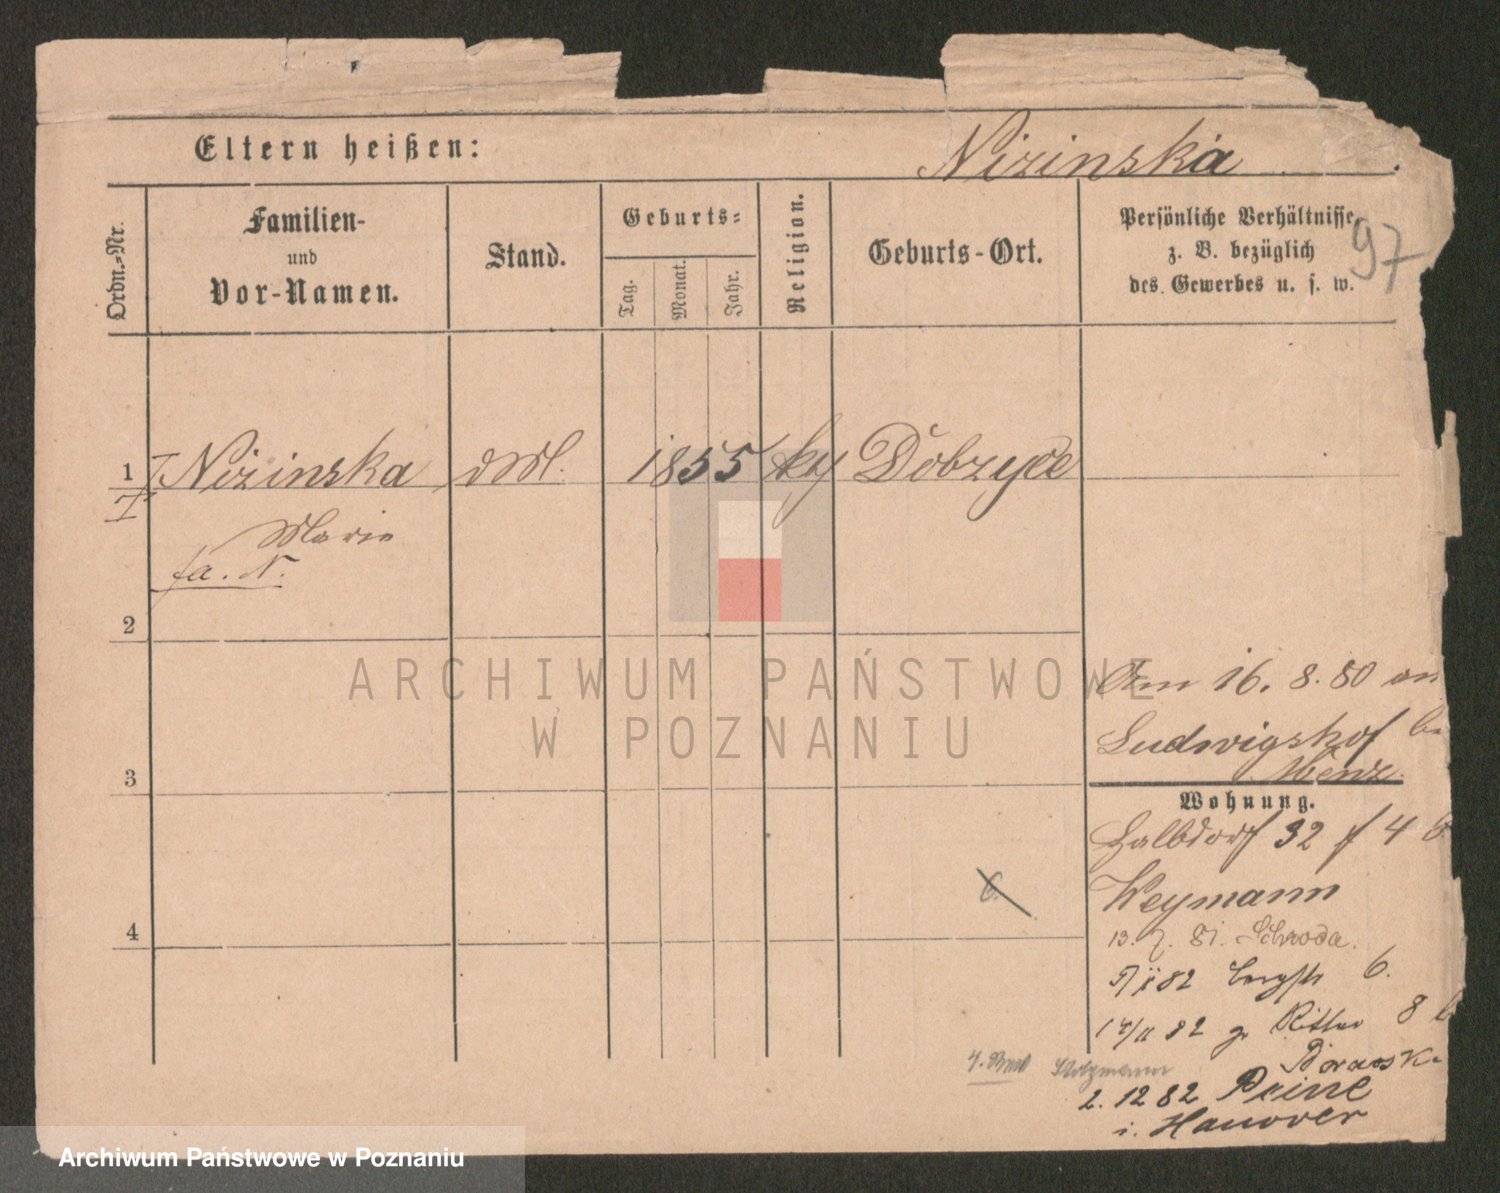 Eltern heißen:
Nizinska
Ordn.-Nr.
Familien-
und
Vor-Namen.
Stand.
Geburts-
Tag.
Monat.
Jahr.
Religion.
Geburts-Ort.
Persönliche Verhältnisse
z. B. bezüglich
des Gewerbes u. s. w.
97
1 Nizinska 1855 Dobzyce
Marie
fa. N.
2
3
4
Am 16. 8. 80
Ludwigshof
Wohnung.
Halbdorf 32 4
Weymann
13. 7. 81. Schroda.
82 Bergstr 6.
82 gr Ritter 8
2. 12 82 Peine
i. Hanover
6.
ARCHIWUM PAŃSTWOWE
W POZNANIU
Archiwum Państwowe w Poznaniu